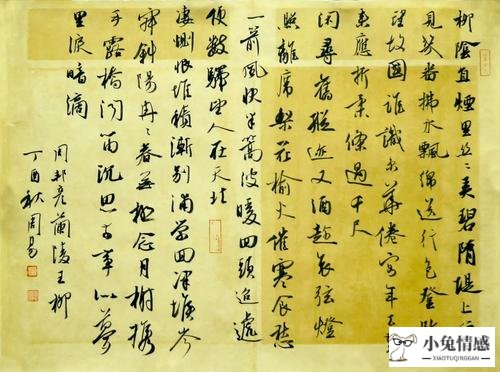 柳陰直煙里丝丝弄碧隋堤上
見幾番拂水飄綿送行色登
望故國誰識京華倦客年
來應折柔條過千尺
閑尋舊蹤迹又酒趁哀弦燈
照離席梨花榆火催寒食愁
一箭風快半篙波暖回頭迢遞
便數驛望人在天北
悽惻恨堆積漸別浦縈回津堠岑
寂斜陽冉冉春無極念月榭攜
手露橋聞笛沉思前事似夢
里淚暗滴
周邦彥蘭陵王柳
丁酉秋周易
小兔情感
XIAOTUQINGGAN